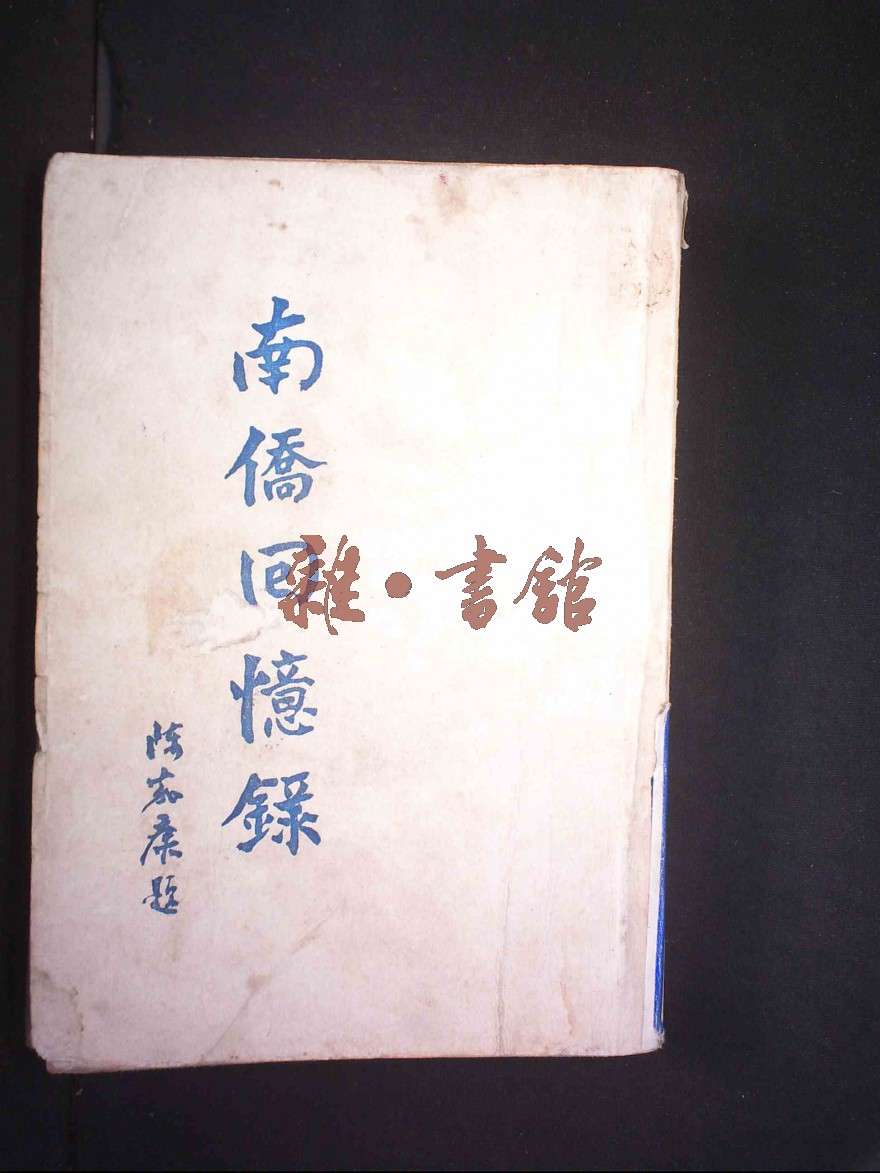 南僑回憶錄
陳嘉庚題
雜•書館